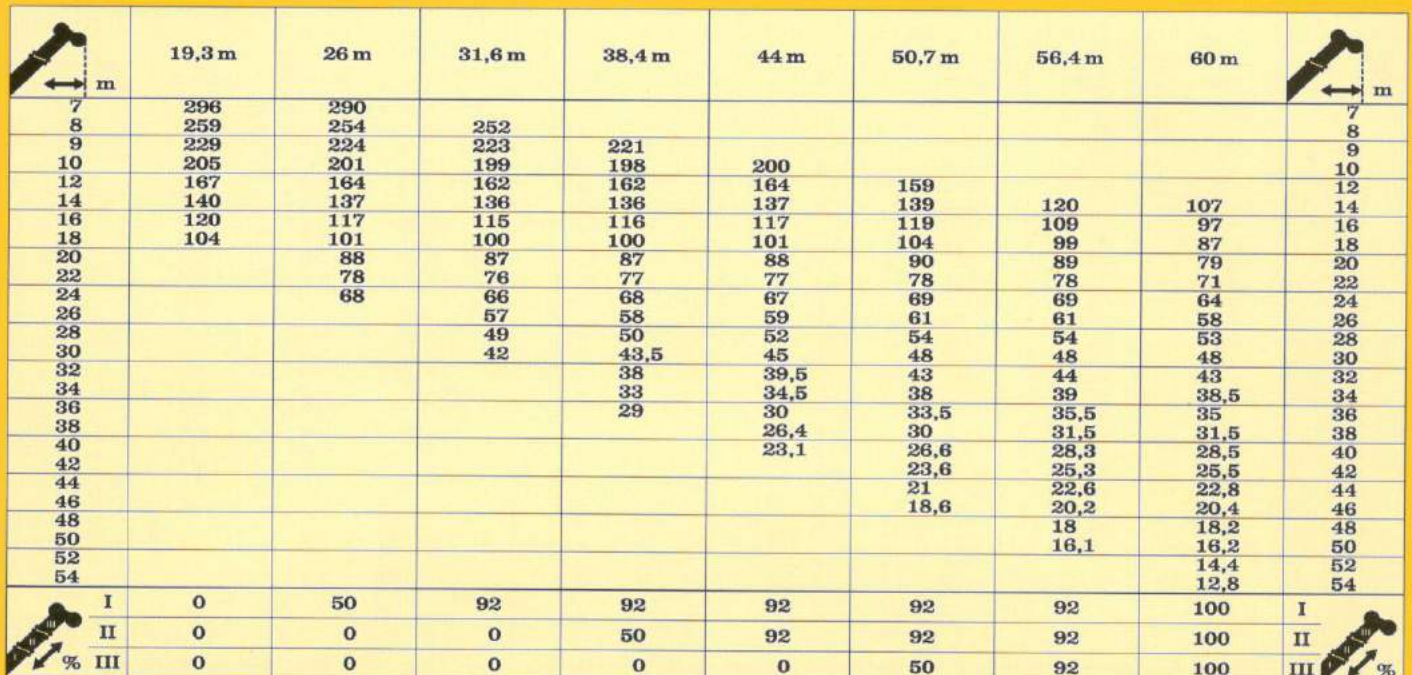 m 19,3 m 26 m 31,6 m 38,4 m 44 m 50,7 m 56,4 m 60 m m
7 296 290 7
8 259 254 252 8
9 229 224 223 221 9
10 205 201 199 198 200 10
12 167 164 162 162 164 159 12
14 140 137 136 136 137 139 120 107 14
16 120 117 115 116 117 119 109 97 16
18 104 101 100 100 101 104 99 87 18
20 88 87 87 88 90 89 79 20
22 78 76 77 77 78 78 71 22
24 68 66 68 67 69 69 64 24
26 57 58 59 61 61 58 26
28 49 50 52 54 54 53 28
30 42 43,5 45 48 48 48 30
32 38 39,5 43 44 43 32
34 33 34,5 38 39 38,5 34
36 29 30 33,5 35,5 35 36
38 26,4 30 31,5 31,5 38
40 23,1 26,6 28,3 28,5 40
42 23,6 25,3 25,5 42
44 21 22,6 22,8 44
46 18,6 20,2 20,4 46
48 18 18,2 48
50 16,1 16,2 50
52 14,4 52
54 12,8 54
I 0 50 92 92 92 92 92 100 I
II 0 0 0 50 92 92 92 100 II
% III 0 0 0 0 0 50 92 100 III %